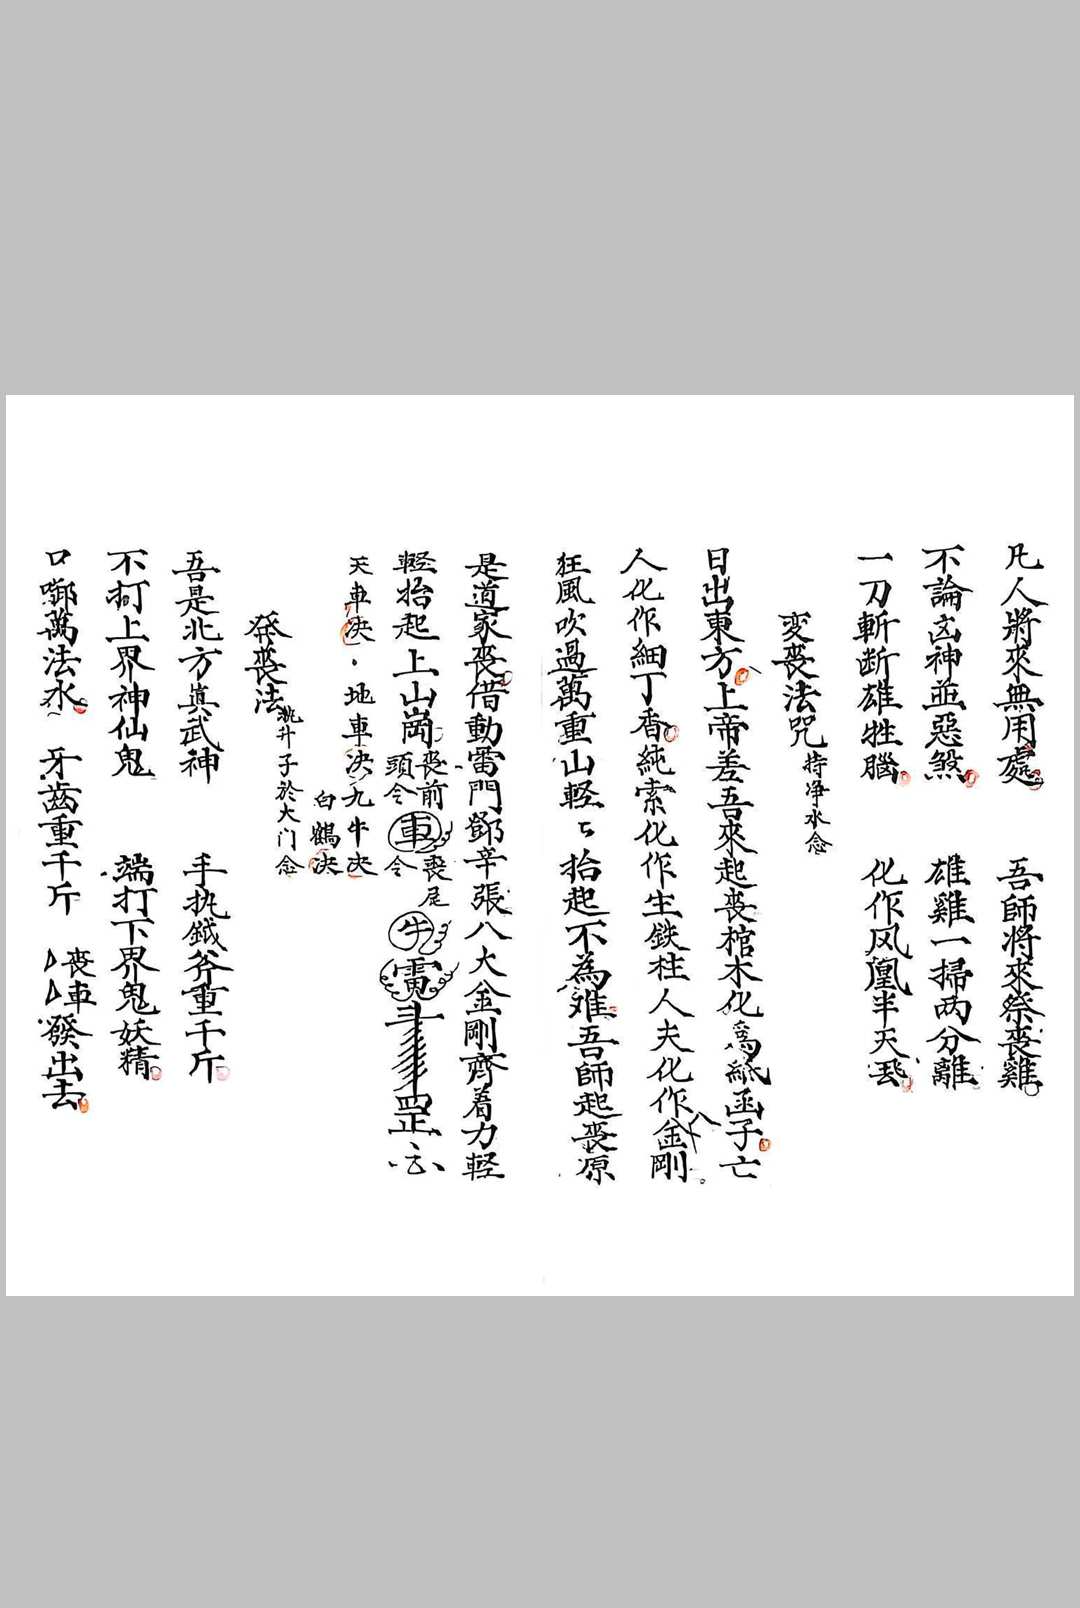 凡人將來無用處 吾師将來祭喪雞
不論凶神並惡煞 雄雞一掃两分離
一刀斬断雄牲腦 化作风凰半天飛
変喪法咒 持净水念
日出東方上帝差吾來起喪棺木化為紙函子亡
人化作細丁香純索化作生鉄柱人夫化作八金剛
狂風吹過萬重山輕々抬起不為难吾師起喪原
是道家喪借動雷門鄧辛張八大金剛齊着力輕
輕抬起上山崗 喪前頭令 車 喪尾令 牛
天車决·地車决九牛决
白鶴决
発喪法 執升子於大门念
吾是北方真武神 手执鉞斧重千斤
不打上界神仙鬼 端打下界鬼妖精
口啣萬法水 牙齒重千斤 喪車發出去